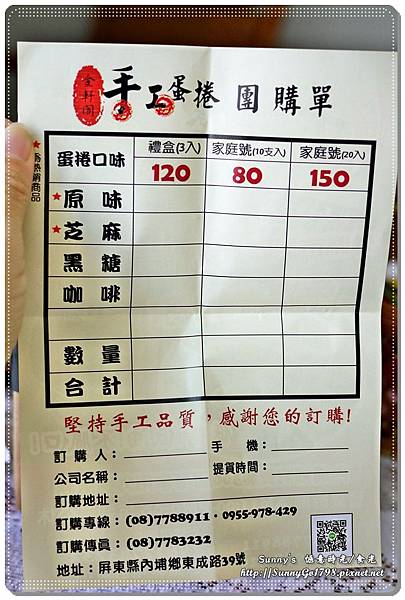 金軒閣
手工蛋捲 團購單
★為熱銷商品
蛋捲口味 禮盒(3入) 家庭號(10支入) 家庭號(20入)
120 80 150
★原味
★芝麻
黑糖
咖啡
數量
合計
堅持手工品質，感謝您的訂購!
訂購人： 手機：
公司名稱： 提貨時間：
訂購地址：
訂購專線：(08)7788911‧0955-978-429
訂購傳真：(08)7783232
地址：屏東縣內埔鄉東成路39號
Sunny's 愜意時光/食光
http://SunnyGo1798.pixnet.net